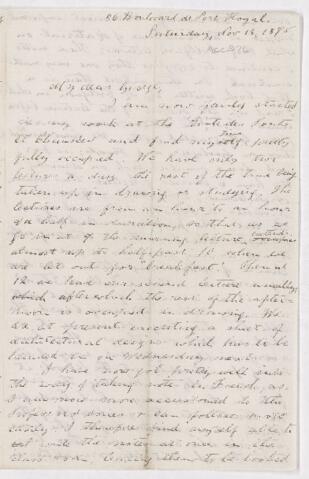 86 Boulevard de Port Royal.
Saturday, Nov 13, 1875
My dear George,
I am now fairly started
in my work at the Ponts
et Chaussées and find my time pretty
fully occupied. We have only two
lectures a day, the rest of the time being
taken up in drawing or studying. The
lectures are from an hour to an hour
and a half in duration, so that as we
go in at 9 the morning lecture
almost up to half past 10 when we
are let out for "breakfast". Then at
12 we have our second lecture usually,
which after which the rest of the after-
noon is occupied in drawing. We
are at present executing a sheet of
architectural designs which has to be
handed in on Wednesday next.
I have now got pretty well into
the way of taking notes in French, as
I am now more accustomed to the
Professors' voices & can follow more
easily. I therefore find myself able to
write the notes at once in the
class room, leaving them to be looked